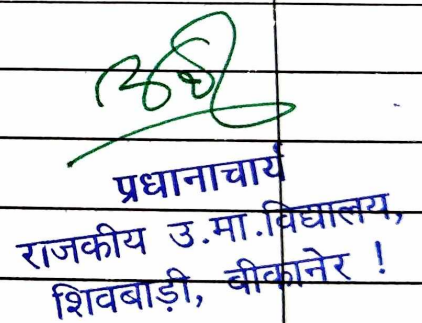 प्रधानाचार्य
राजकीय उ.मा.विद्यालय,
शिवबाड़ी, बीकानेर !